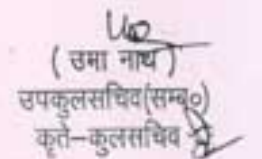 ( उमा नाथ )
उपकुलसचिव(सम्ब०)
कृते–कुलसचिव